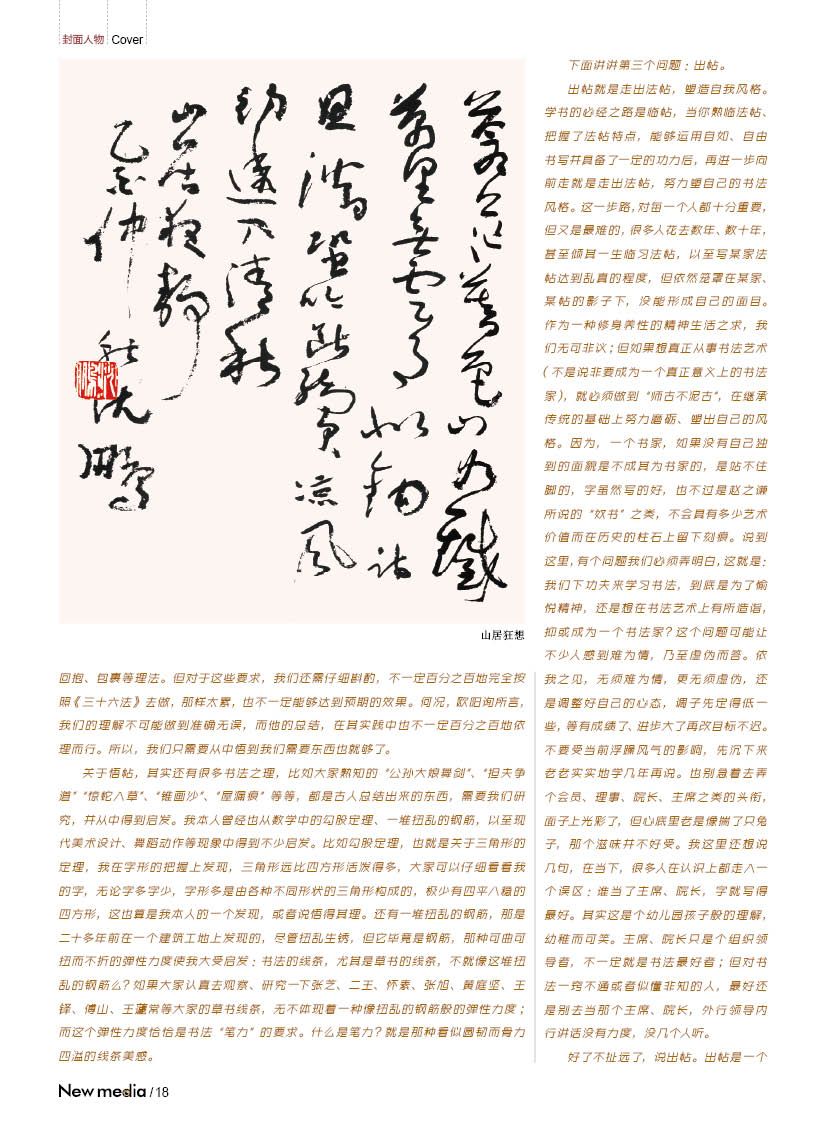 封面人物 Cover
萬里無雲月似鈎
涼風
清秋
山居
乙亥仲秋沈鵬
山居狂想
回抱、包裹等理法。但对于这些要求，我们还需仔细斟酌，不一定百分之百地完全按
照《三十六法》去做，那样太累，也不一定能够达到预期的效果。何况，欧阳询所言，
我们的理解不可能做到准确无误，而他的总结，在其实践中也不一定百分之百地依
理而行。所以，我们只需要从中悟到我们需要东西也就够了。
关于悟帖，其实还有很多书法之理，比如大家熟知的“公孙大娘舞剑”、“担夫争
道”“惊蛇入草”、“锥画沙”、“屋漏痕”等等，都是古人总结出来的东西，需要我们研
究，并从中得到启发。我本人曾经也从数学中的勾股定理、一堆扭乱的钢筋，以至现
代美术设计、舞蹈动作等现象中得到不少启发。比如勾股定理，也就是关于三角形的
定理，我在字形的把握上发现，三角形远比四方形活泼得多，大家可以仔细看看我
的字，无论字多字少，字形多是由各种不同形状的三角形构成的，极少有四平八稳的
四方形，这也算是我本人的一个发现，或者说悟得其理。还有一堆扭乱的钢筋，那是
二十多年前在一个建筑工地上发现的，尽管扭乱生锈，但它毕竟是钢筋，那种可曲可
扭而不折的弹性力度使我大受启发：书法的线条，尤其是草书的线条，不就像这堆扭
乱的钢筋么？如果大家认真去观察、研究一下张芝、二王、怀素、张旭、黄庭坚、王
铎、傅山、王蘧常等大家的草书线条，无不体现着一种像扭乱的钢筋般的弹性力度；
而这个弹性力度恰恰是书法“笔力”的要求。什么是笔力？就是那种看似圆韧而骨力
四溢的线条美感。
下面讲讲第三个问题：出帖。
出帖就是走出法帖，塑造自我风格。
学书的必经之路是临帖，当你熟临法帖、
把握了法帖特点，能够运用自如、自由
书写并具备了一定的功力后，再进一步向
前走就是走出法帖，努力塑自己的书法
风格。这一步路，对每一个人都十分重要，
但又是最难的，很多人花去数年、数十年，
甚至倾其一生临习法帖，以至写某家法
帖达到乱真的程度，但依然笼罩在某家、
某帖的影子下，没能形成自己的面目。
作为一种修身养性的精神生活之求，我
们无可非议；但如果想真正从事书法艺术
（不是说非要成为一个真正意义上的书法
家），就必须做到“师古不泥古”，在继承
传统的基础上努力磨砺、塑出自己的风
格。因为，一个书家，如果没有自己独
到的面貌是不成其为书家的，是站不住
脚的，字虽然写的好，也不过是赵之谦
所说的“奴书”之类，不会具有多少艺术
价值而在历史的柱石上留下刻痕。说到
这里，有个问题我们必须弄明白，这就是：
我们下功夫来学习书法，到底是为了愉
悦精神，还是想在书法艺术上有所造诣，
抑或成为一个书法家？这个问题可能让
不少人感到难为情，乃至虚伪而答。依
我之见，无须难为情，更无须虚伪，还
是调整好自己的心态，调子先定得低一
些，等有成绩了、进步大了再改目标不迟。
不要受当前浮躁风气的影响，先沉下来
老老实实地学几年再说。也别急着去弄
个会员、理事、院长、主席之类的头衔，
面子上光彩了，但心底里老是像揣了只兔
子，那个滋味并不好受。我这里还想说
几句，在当下，很多人在认识上都走入一
个误区：谁当了主席、院长，字就写得
最好。其实这是个幼儿园孩子般的理解，
幼稚而可笑。主席、院长只是个组织领
导者，不一定就是书法最好者；但对书
法一窍不通或者似懂非知的人，最好还
是别去当那个主席、院长，外行领导内
行讲话没有力度，没几个人听。
好了不扯远了，说出帖。出帖是一个
New media / 18